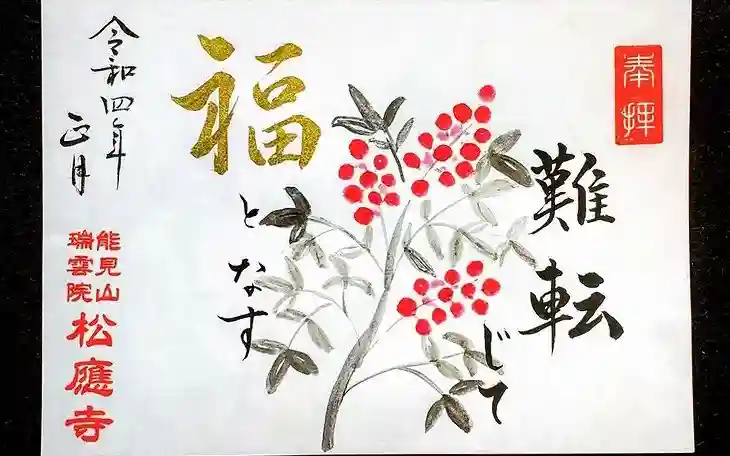 奉拝
難転じて
福となす
令和四年
正月
能見山
瑞雲院
松應寺